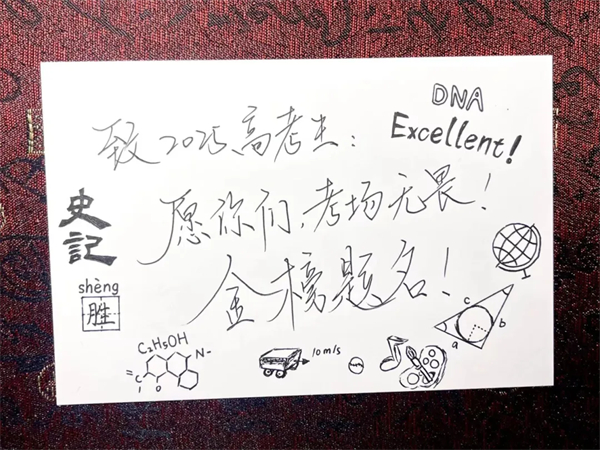 DNA
Excellent!
致2025高考生:
愿你们,考场无畏!
金榜题名!
史記
shèng
胜
C₂H₅OH
N-
=C
O
10m/s
c
b
a